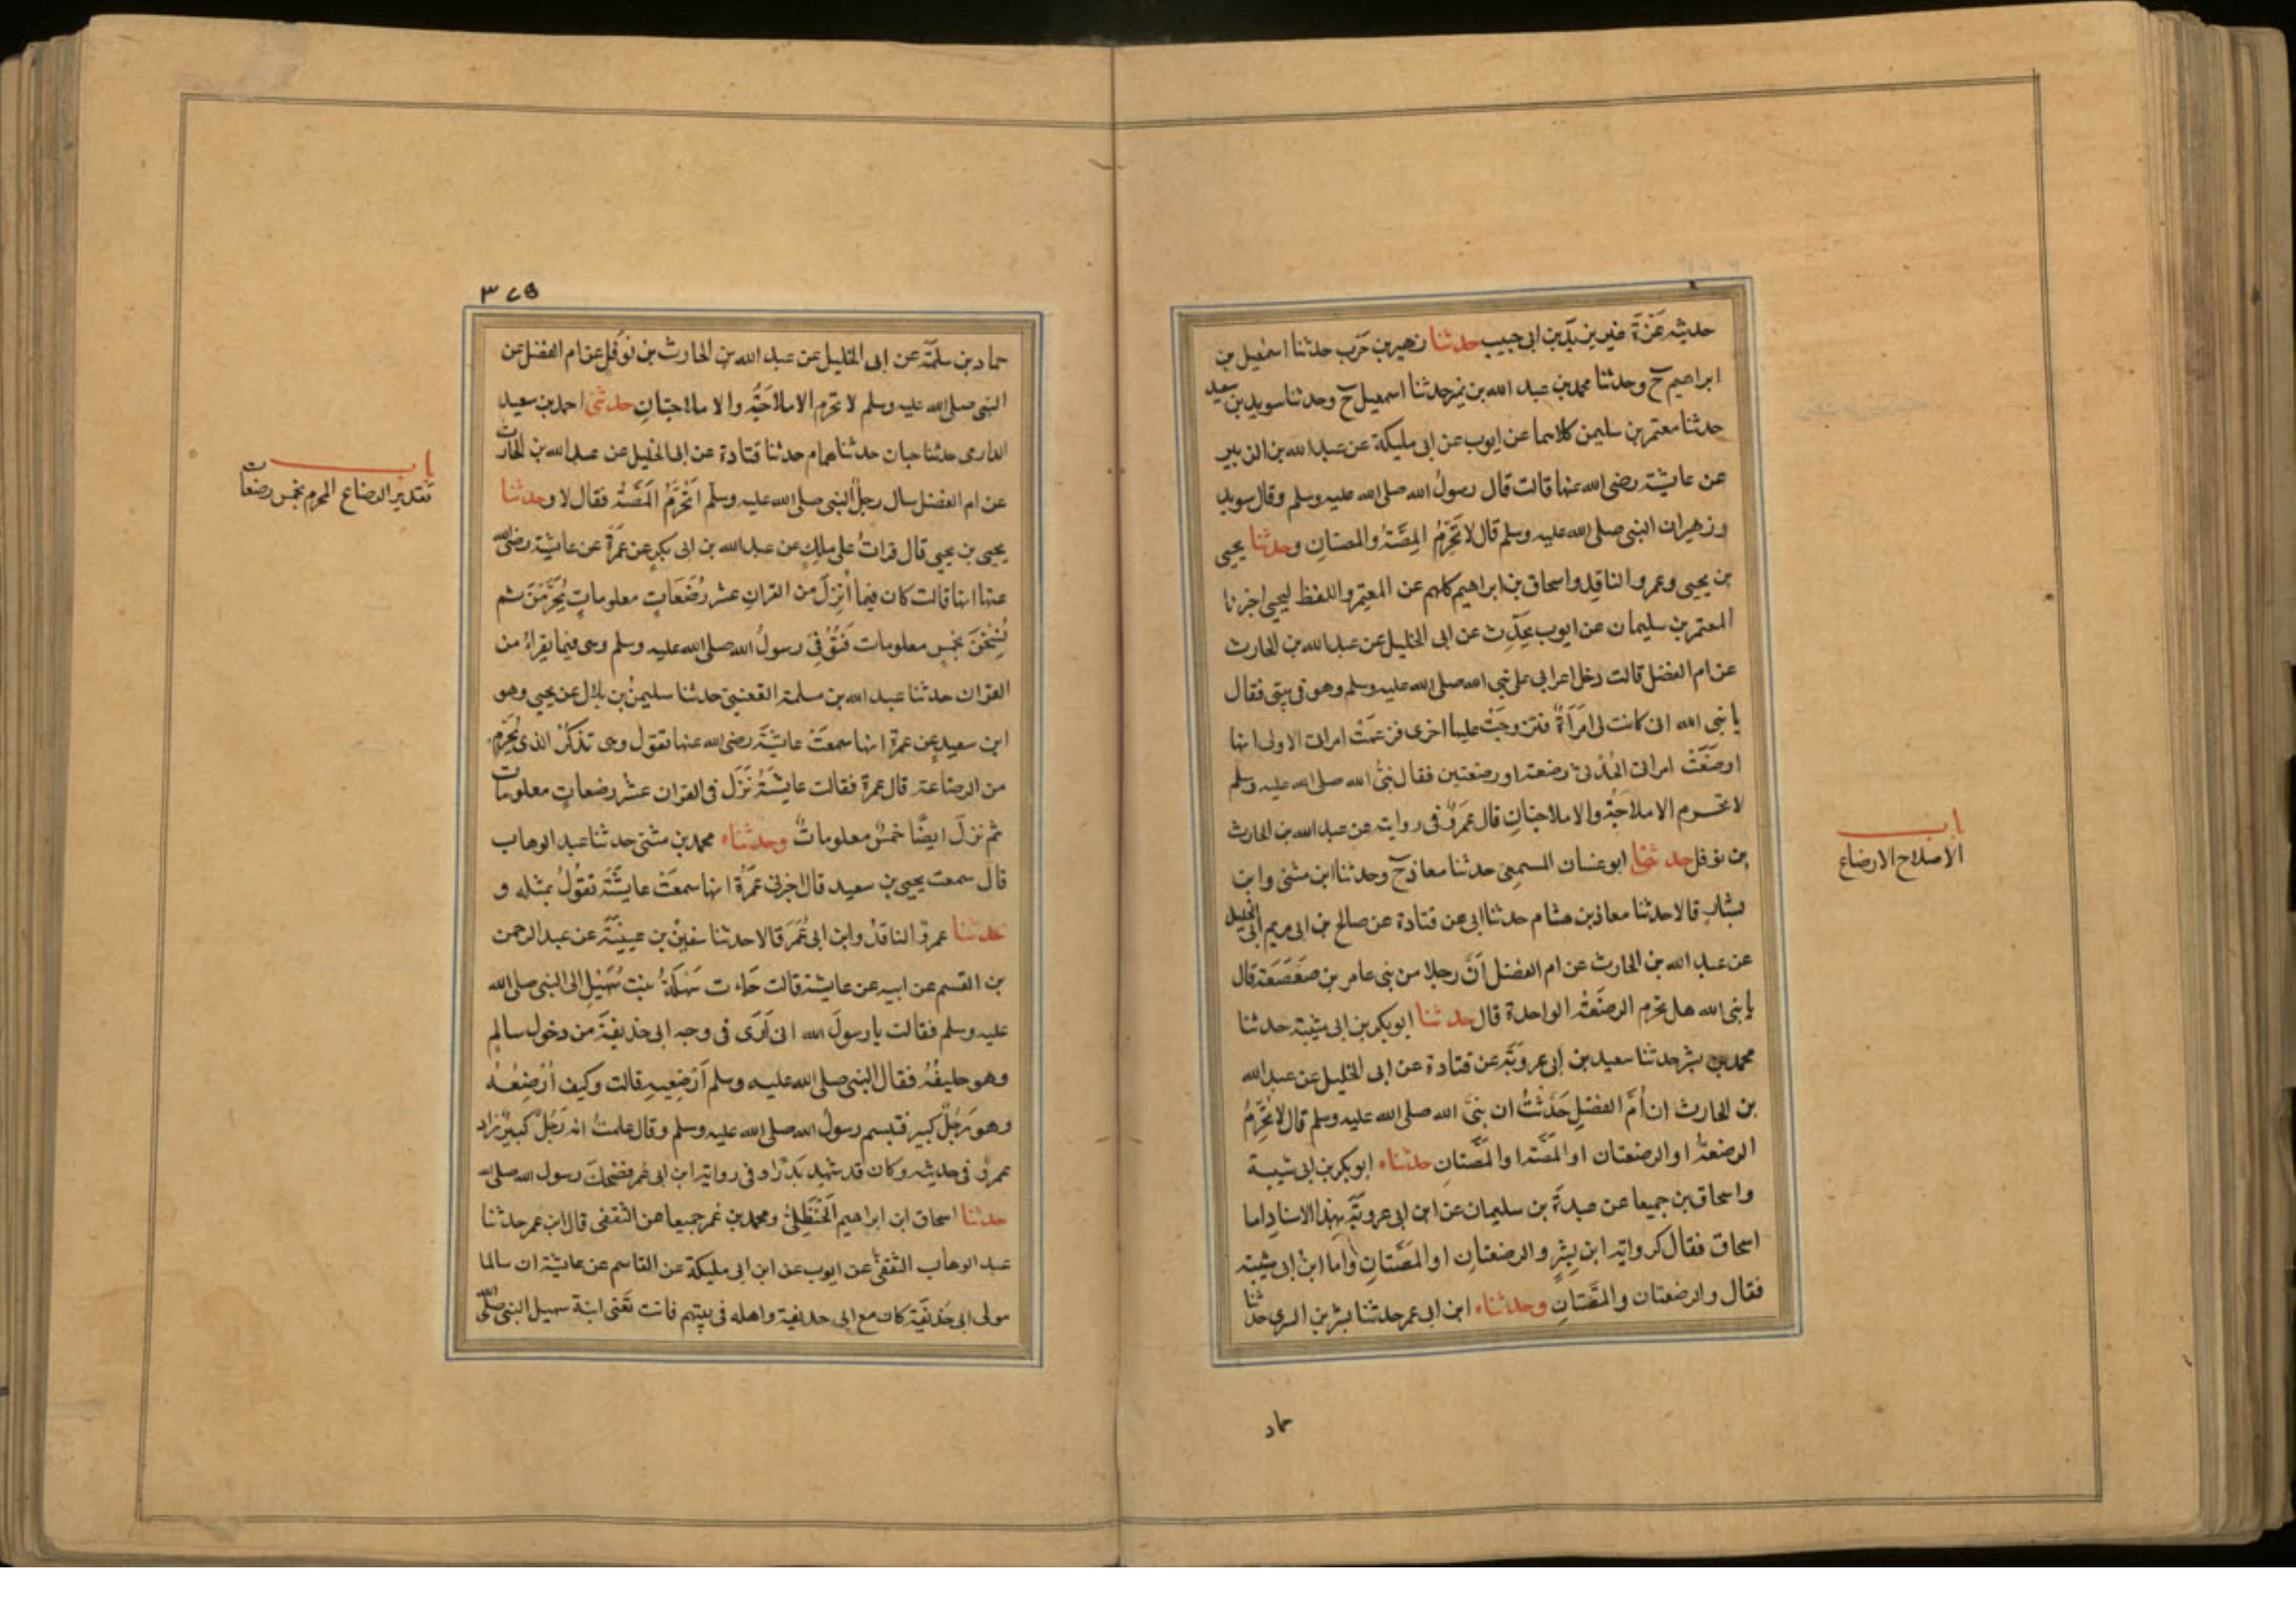 حديثه عَزّةَ غير يزيد بن ابى حبيب حدثنا زهير بن حَرب حدثنا اسمعيل بن
ابراهيم ح وحدثنا محمد بن عبد الله بن نمير حدثنا اسمعيل ح وحدثنا سويد بن سعيد
حدثنا معتمر بن سليمن كلاهما عن ايوب عن ابى مليكة عن عبد الله بن الزبير
عن عايشة رضى الله عنها قالت قال رسولُ الله صلى الله عليه وسلم وقال سويد
وزهير ان النبى صلى الله عليه وسلم قال لا تُحَرِّمُ المصَّةُ والمصتانِ وحدثنا يحيى
بن يحيى وعمرو الناقد واسحاق بن ابراهيم كلهم عن المعتمر واللفظ ليحيى اخبرنا
المعتمر بن سليمان عن ايوب يُحدِّث عن ابى الخليل عن عبد الله بن الحارث
عن ام الفضل قالت دخل اعرابى على نبى الله صلى الله عليه وسلم وهو فى بيتى فقال
يا نبى الله انى كانت لى امرَاَةٌ فتزوجَتْ عليها اخرى فزعمَتْ امراتى الاولى انها
ارضَعَتْ امراتى الحُدثى رضعة او رضعتين فقال نبىُّ الله صلى الله عليه وسلم
لا تحرم الاملاجَةُ والاملاجتانِ قال عَمروٌ فى روايته عن عبد الله بن الحارث
بن نوفل حدثنى ابو غسان المسمعى حدثنا معاذ ح وحدثنا ابن مثنى وابن
بشارٍ قالا حدثنا معاذ بن هشام حدثنا ابى عن قتادة عن صالح بن ابى مريم ابى الخليل
عن عبد الله بن الحارث عن ام الفضل اَنَّ رجلا من بنى عامر بن صَعصَعَة قال
يا نبى الله هل تحرم الرضعَةُ الواحدة قال حدثنا ابو بكر بن ابى شيبة حدثنا
محمد بن بشر حدثنا سعيد بن ابى عروبَةَ عن قتادة عن ابى الخليل عن عبد الله
بن الحارث ان اُمَّ الفضلِ حَدَّثَتْ ان نبىَّ الله صلى الله عليه وسلم قال لا تُحَرِّمُ
الرضعةُ او الرضعتان او المَصَّة او المَصَّتانِ حدثناه ابو بكر بن ابى شيبة
واسحاق بن جميعا عن عبدَةَ بن سليمان عن ابن ابى عروبَةَ بهذا الاسنادِ اما
اسحاق فقال كرواية ابن بِشرٍ والرضعتانِ او المَصَّتانِ وَاما ابن ابى شيبة
فقال والرضعتان والمَصَّتانِ وحدثناه ابن ابى عمر حدثنا بشر بن السرى حدثنا
حماد
باب
الاملاج الارضاع
٣٧٥
حماد بن سلمَة عن ابى الخليل عن عبد الله بن الحارث بن نَوفل عن ام الفضل عن
النبى صلى الله عليه وسلم لا تحرم الاملاجَةُ والاملاجتانِ حدثنى احمد بن سعيد
الدارمى حدثنا حبان حدثنا همام حدثنا قتادة عن ابى الخليل عن عبد الله بن الحارث
عن ام الفضل سال رجلٌ النبى صلى الله عليه وسلم اَتُحَرِّمُ المَصَّةُ فقال لا وحدثنا
يحيى بن يحيى قال قراتُ على ملِكٍ عن عبد الله بن ابى بكرٍ عن عَمرَةَ عن عايشة رضى الله
عنها انها قالت كان فيما اُنزِلَ من القران عشر رَضَعَاتٍ معلوماتٍ يُحَرِّمْنَ ثم
نُسِخْنَ بخمسٍ معلومات فَتُوُفِّىَ رسولُ الله صلى الله عليه وسلم وهى فيما يقراءُ من
القران حدثنا عبد الله بن مسلمة القعنبىُّ حدثنا سليمنُ بن بلال عن يحيى وهو
ابن سعيدٍ عن عمرة انها سمعَتْ عايشَةَ رضى الله عنها تقول وهى تذكُرُ الذى يُحَرِّمُ
من الرضاعة قال عمرة فقالت عايشَةُ نزَلَ فى القران عشر رضعاتٍ معلومات
ثم نزلَ ايضًا خمسٌ معلوماتٌ وحدثناه محمد بن مثنى حدثنا عبد الوهاب
قال سمعت يحيى بن سعيد قال اخبرتنى عَمرَةُ انها سمعَتْ عايشَةَ تقولُ بمثله و
حدثنا عمرو الناقدُ وابن ابى عُمَرَ قالا حدثنا سفينُ بن عيينَةَ عن عبد الرحمن
بن القسم عن ابيه عن عايشة قالت جاءت سَهلَةُ بنت سُهَيْلٍ الى النبى صلى الله
عليه وسلم فقالت يا رسولَ الله انى اَرَى فى وجه ابى حذيفةَ من دخول سالمٍ
وهو حليفُهُ فقال النبى صلى الله عليه وسلم اَرضِعيهِ قالت وكيف اُرضِعُهُ
وهو رَجُلٌ كبير فتبسم رسولُ الله صلى الله عليه وسلم وقال علمتُ انه رَجُلٌ كبيرٌ زاد
عمروٌ فى حديثه وكان قد شهِدَ بَدْرًا وفى رواية ابن ابى عمر فضحكَ رسول الله صلى الله
حدثنا اسحاق ابن ابراهيم الحَنظَلىُّ ومحمد بن عمر جميعا عن الثقفى قال ابن عمر حدثنا
عبد الوهاب الثقفىُّ عن ايوب عن ابن ابى مليكة عن القاسم عن عايشة ان سالما
مولى ابى حُذَيفَة كان مع ابى حذيفة واهله فى بيتهم فاتت تعنى ابنة سهيل النبى صلى الله
باب
تقدير الرضاع المحرم بخمس رضعات